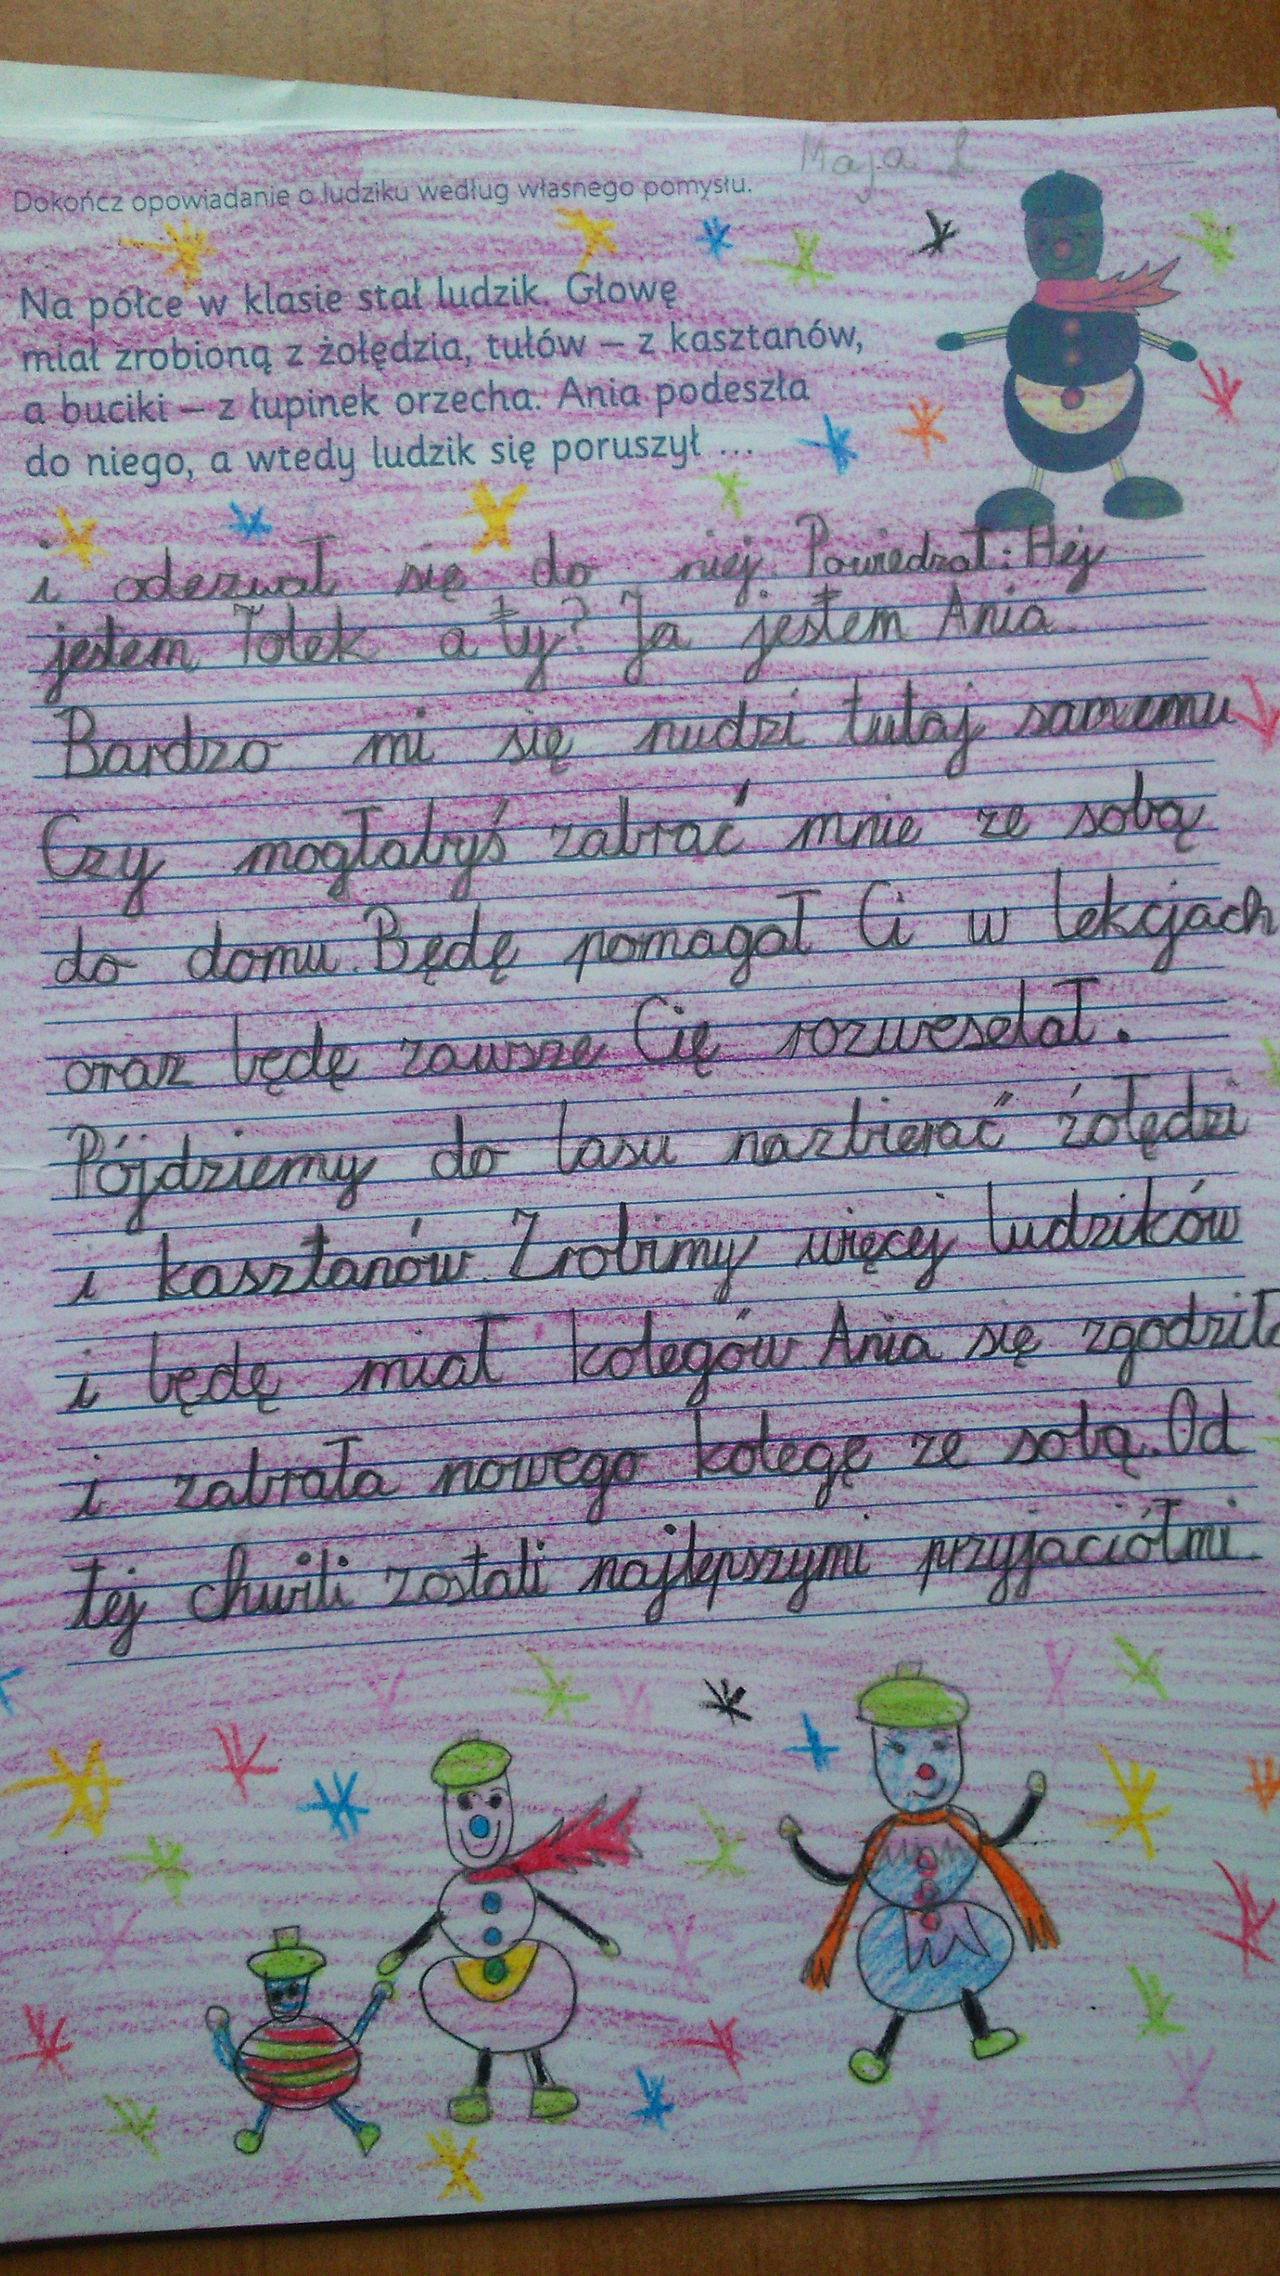 Maja Ł
Dokończ opowiadanie o ludziku według własnego pomysłu.
Na półce w klasie stał ludzik. Głowę
miał zrobioną z żołędzia, tułów – z kasztanów,
a buciki – z łupinek orzecha. Ania podeszła
do niego, a wtedy ludzik się poruszył ...
i odezwał się do niej. Powiedział: Hej
jestem Tolek a ty? Ja jestem Ania.
Bardzo mi się nudzi tutaj samemu
Czy mogłabyś zabrać mnie ze sobą
do domu. Będę pomagał Ci w lekcjach
oraz będę zawsze Cię rozweselał.
Pójdziemy do lasu nazbierać żołędzi
i kasztanów. Zrobimy więcej ludzików
i będę miał kolegów Ania się zgodziła
i zabrała nowego kolegę ze sobą. Od
tej chwili zostali najlepszymi przyjaciółmi.